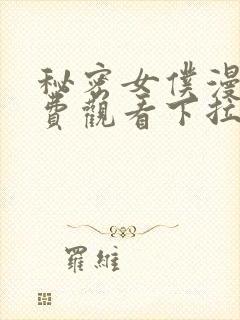 秘密女僕漫
費觀看下拉
羅維